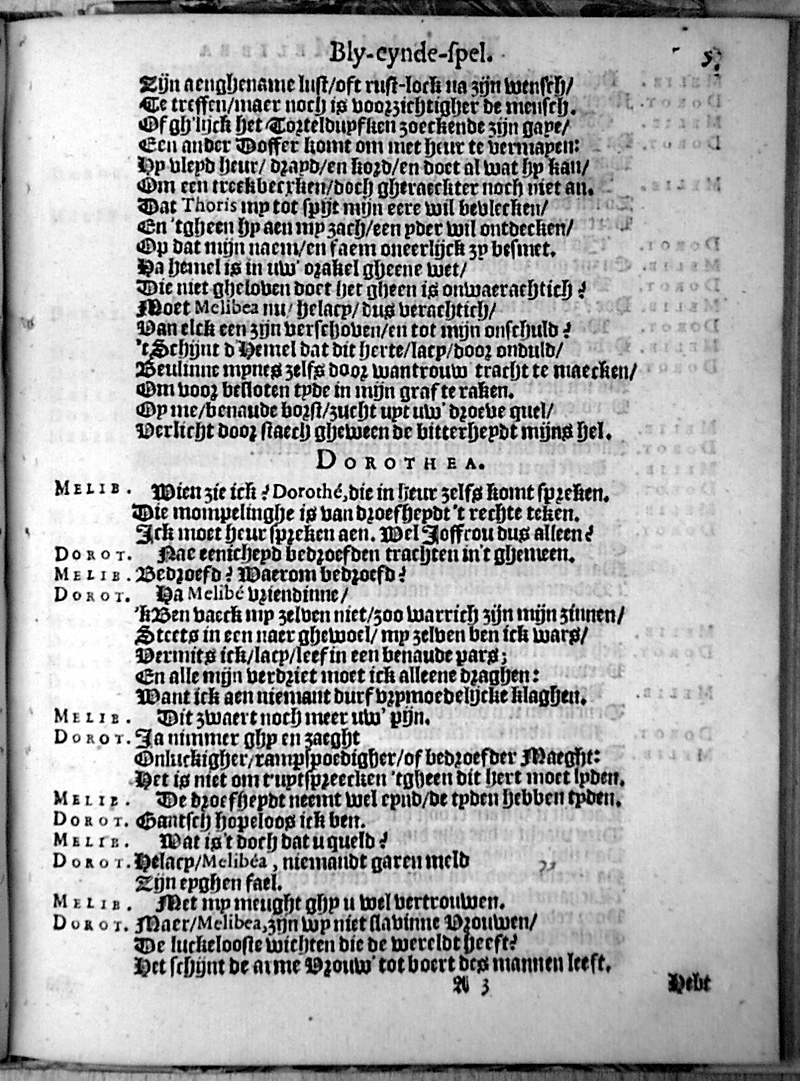 Bly-eynde-spel. 5.
Zijn aenghename lust/oft rust-lock na zijn wensch/
Te treffen/maer noch is voorzichtigher de mensch.
Of gh'lijck het Torteldupfken zoeckende zijn gaye/
Een ander Doffer komt om met heur te vermayen:
Hy vleyd heur/ drayd/en kord/en doet al wat hy kan/
Om een treckbecxken/doch gheraeckter noch niet an.
Dat Thoris my tot spijt mijn eere wil bevlecken/
En 'tgheen hy aen my zach/een yder wil ontdecken/
Op dat mijn naem/en faem oneerlijck zy besmet.
Ha hemel is in uw' orakel gheene wet/
Die niet gheloven doet het gheen is onwaerachtich?
Moet Melibea nu/ helacy/ dus verachtich/
Van elck een zijn verschoven/en tot mijn onschuld?
't Schijnt d'Hemel dat dit herte/lacy/door onduld/
Beulinne mynes zelfs door wantrouw' tracht te maecken/
Om voor besloten tyde in mijn graf te raken.
Op me/benaude borst/zucht uyt uw' droeve quel/
Verlicht door staech gheween de bitterheydt mijns hel.
DOROTHEA.
MELIB. Wien zie ick? Dorothé, die in heur zelfs komt spreken.
Die mompelinghe is van droefheydt 't rechte teken.
Ick moet heur spreken aen. Wel Joffrou dus alleen?
DOROT. Nae eenicheyd bedroefden trachten in't ghemeen.
MELIB. Bedroefd? Waerom bedroefd?
DOROT. Ha Melibé vriendinne/
'kBen vaeck my zelven niet/zoo warrich zijn mijn zinnen/
Steets in een naer ghewoel/ my zelven ben ick wars/
Vermits ick/lacy/leef in een benaude pars;
En alle mijn verdriet moet ick alleene draghen:
Want ick aen niemant durf vrymoedelijcke klaghen.
MELIB. Dit zwaert noch meer uw' pijn.
DOROT. Ja nimmer ghy en zaeght
Onluckigher/rampspoedigher/of bedroefder Maeght:
Het is niet om t'uytspreecken 'tgheen dit hert moet lyden.
MELIB. De droefheydt neemt wel eynd/de tyden hebben tyden.
DOROT. Gantsch hopeloos ick ben.
MELIB. Wat is't doch dat u queld?
DOROT. Helacy/Melibéa, niemandt garen meld
Zijn eyghen fael.
MELIB. Met my meught ghy u wel vertrouwen.
DOROT. Maer/Melibea, zijn wy niet slavinne Vrouwen/
De luckelooste wichten die de wereldt heeft?
Het schijnt de arme Vrouw' tot boert des mannen leeft.
A 3 Hebt